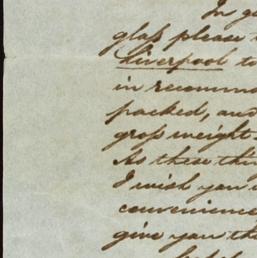 In
glass please
Liverpool to
in recomm
packed, and
gross weight
As these thi
I wish you
convenience
give you th